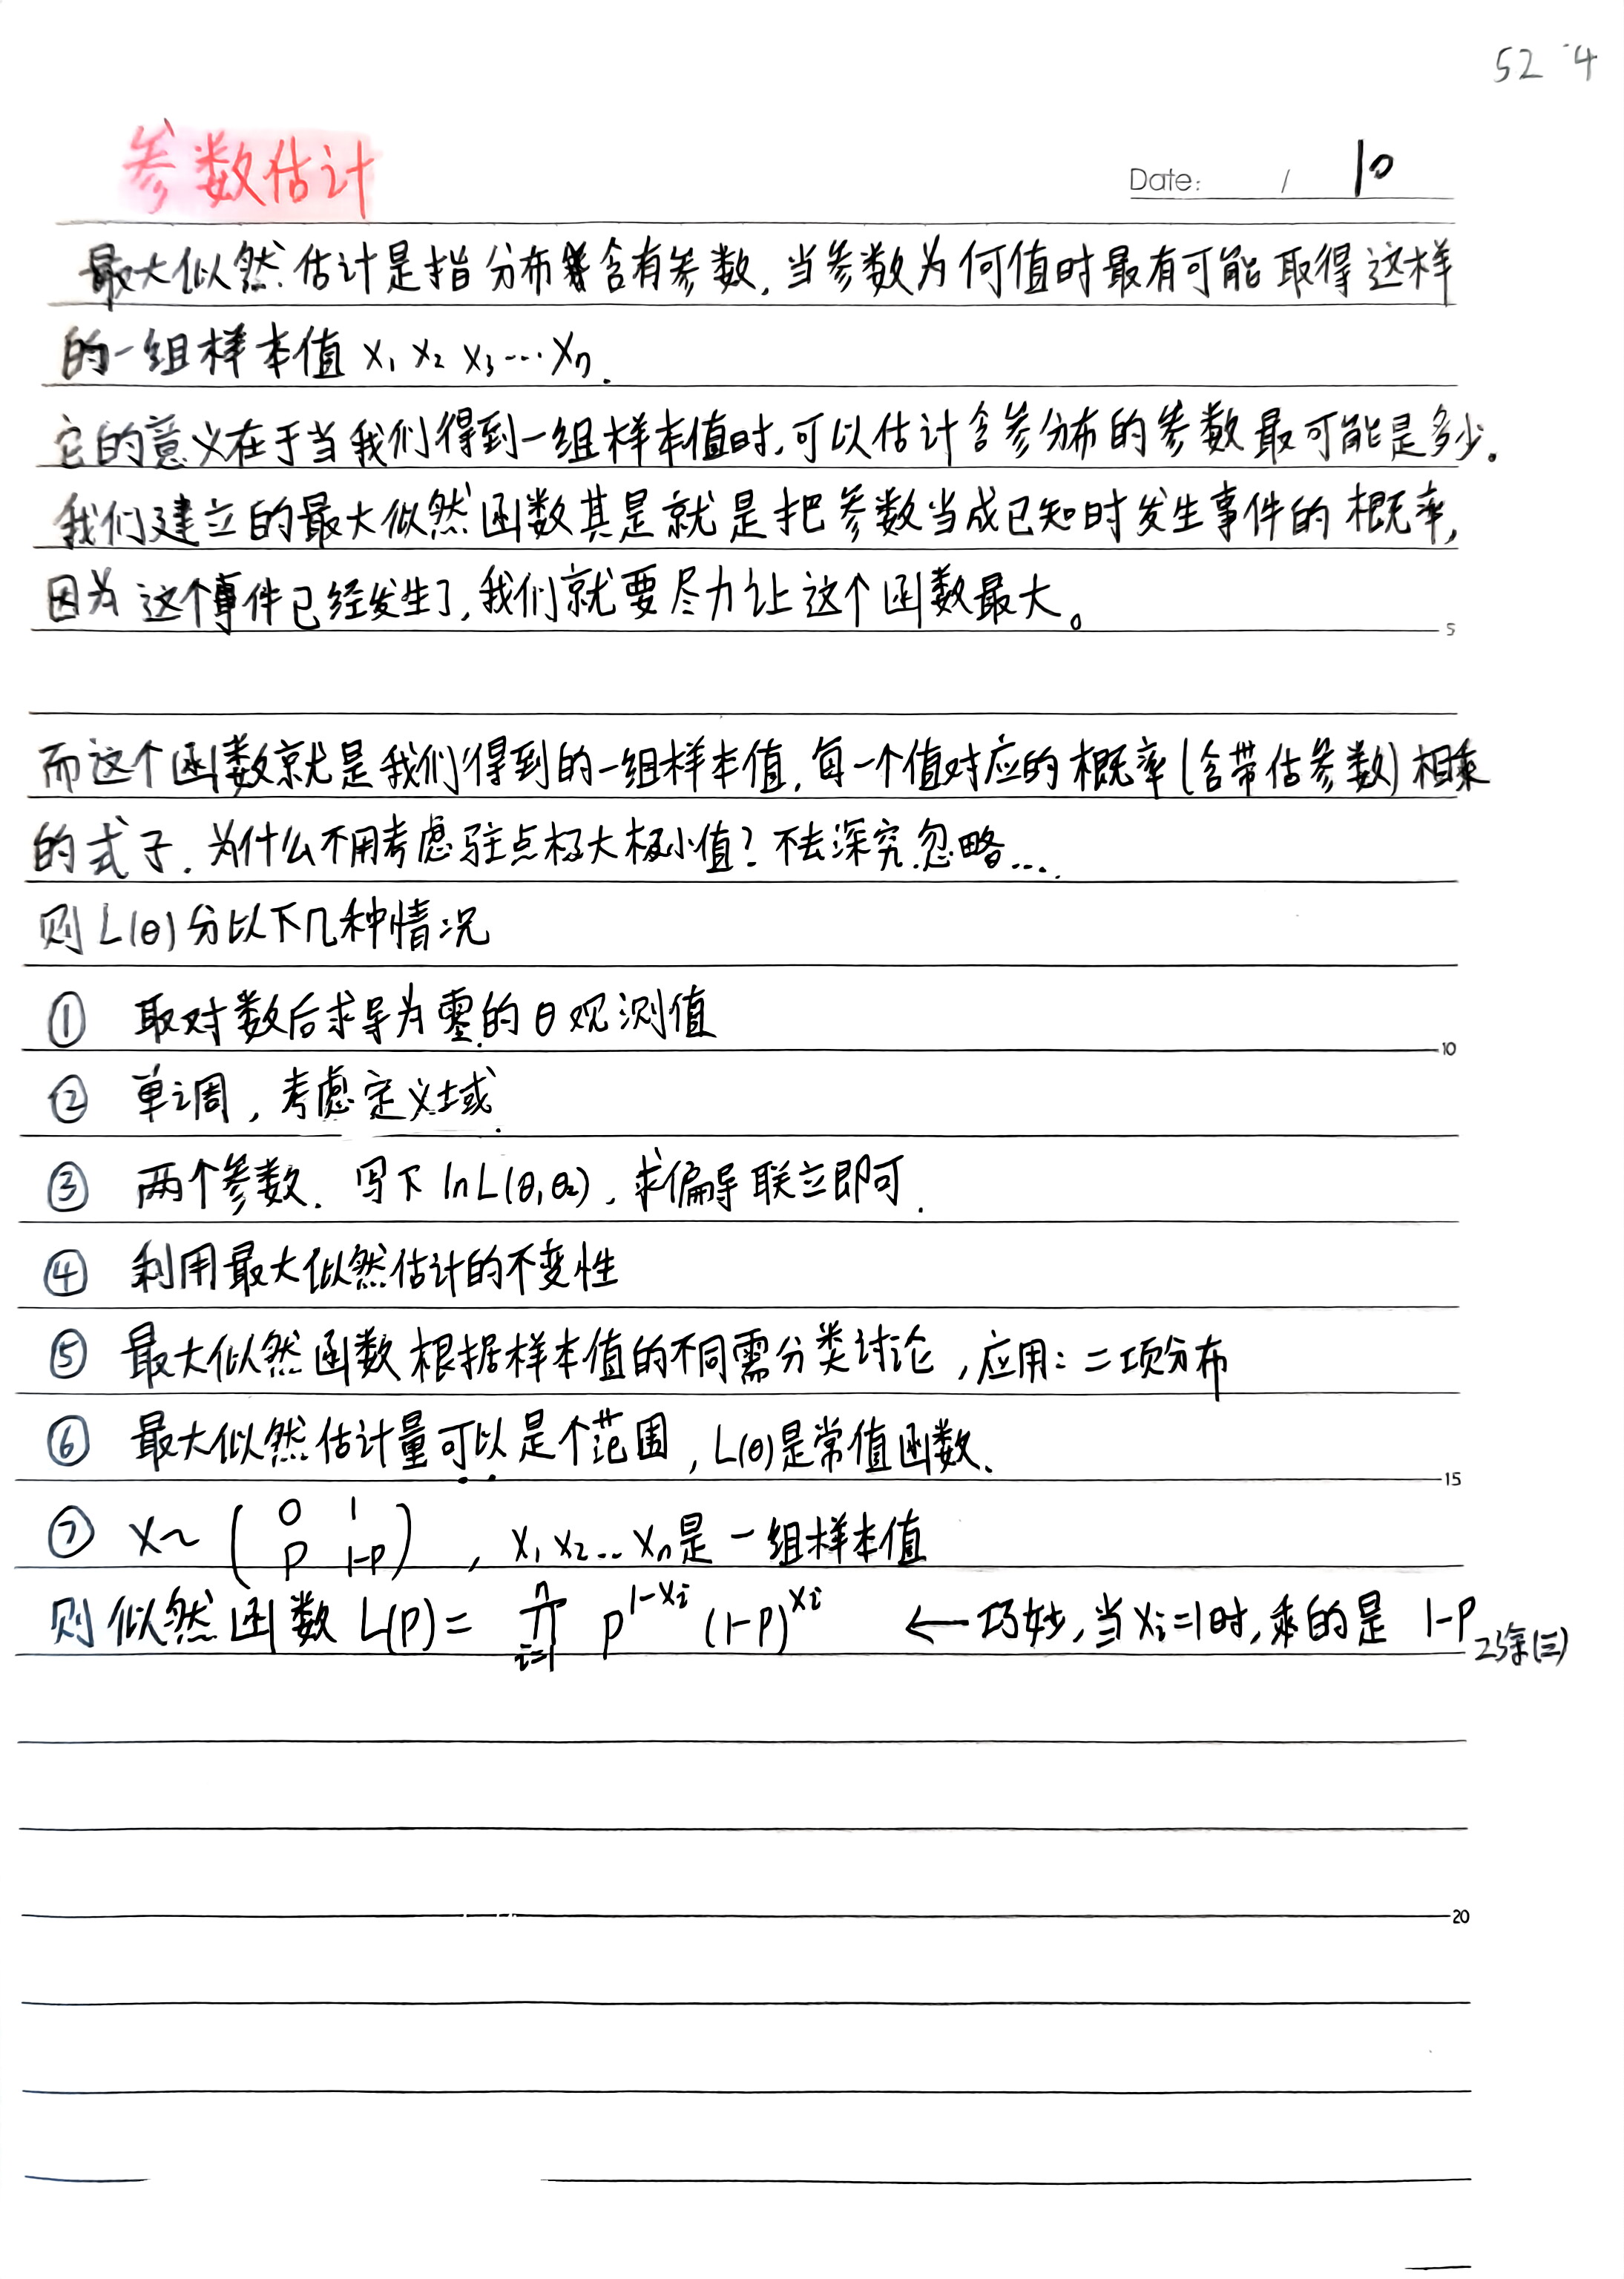 52 4
参数估计
Date: / 10
最大似然估计是指分布含有参数,当参数为何值时最有可能取得这样
的一组样本值 x₁ x₂ x₃…xₙ.
它的意义在于当我们得到一组样本值时,可以估计含参分布的参数最可能是多少。
我们建立的最大似然函数其是就是把参数当成已知时发生事件的概率,
因为这个事件已经发生了,我们就要尽力让这个函数最大。
5
而这个函数就是我们得到的一组样本值,每一个值对应的概率(含带估参数)相乘
的式子.为什么不用考虑驻点极大极小值?不去深究.忽略...
则L(θ)分以下几种情况
① 取对数后求导为零的θ观测值
10
② 单调,考虑定义域.
③ 两个参数.写下lnL(θ₁θ₂),求偏导联立即可.
④ 利用最大似然估计的不变性
⑤ 最大似然函数根据样本值的不同需分类讨论,应用:二项分布
⑥ 最大似然估计量可以是个范围,L(θ)是常值函数、
15
⑦ X~ ( 0 1
P 1-P ) , x₁ x₂... xₙ是一组样本值
则似然函数 L(P)= ∏ᵢ₌₁ⁿ P^(1-xᵢ) (1-P)^xᵢ ← 巧妙,当xᵢ=1时,乘的是 1-P
(三)
20